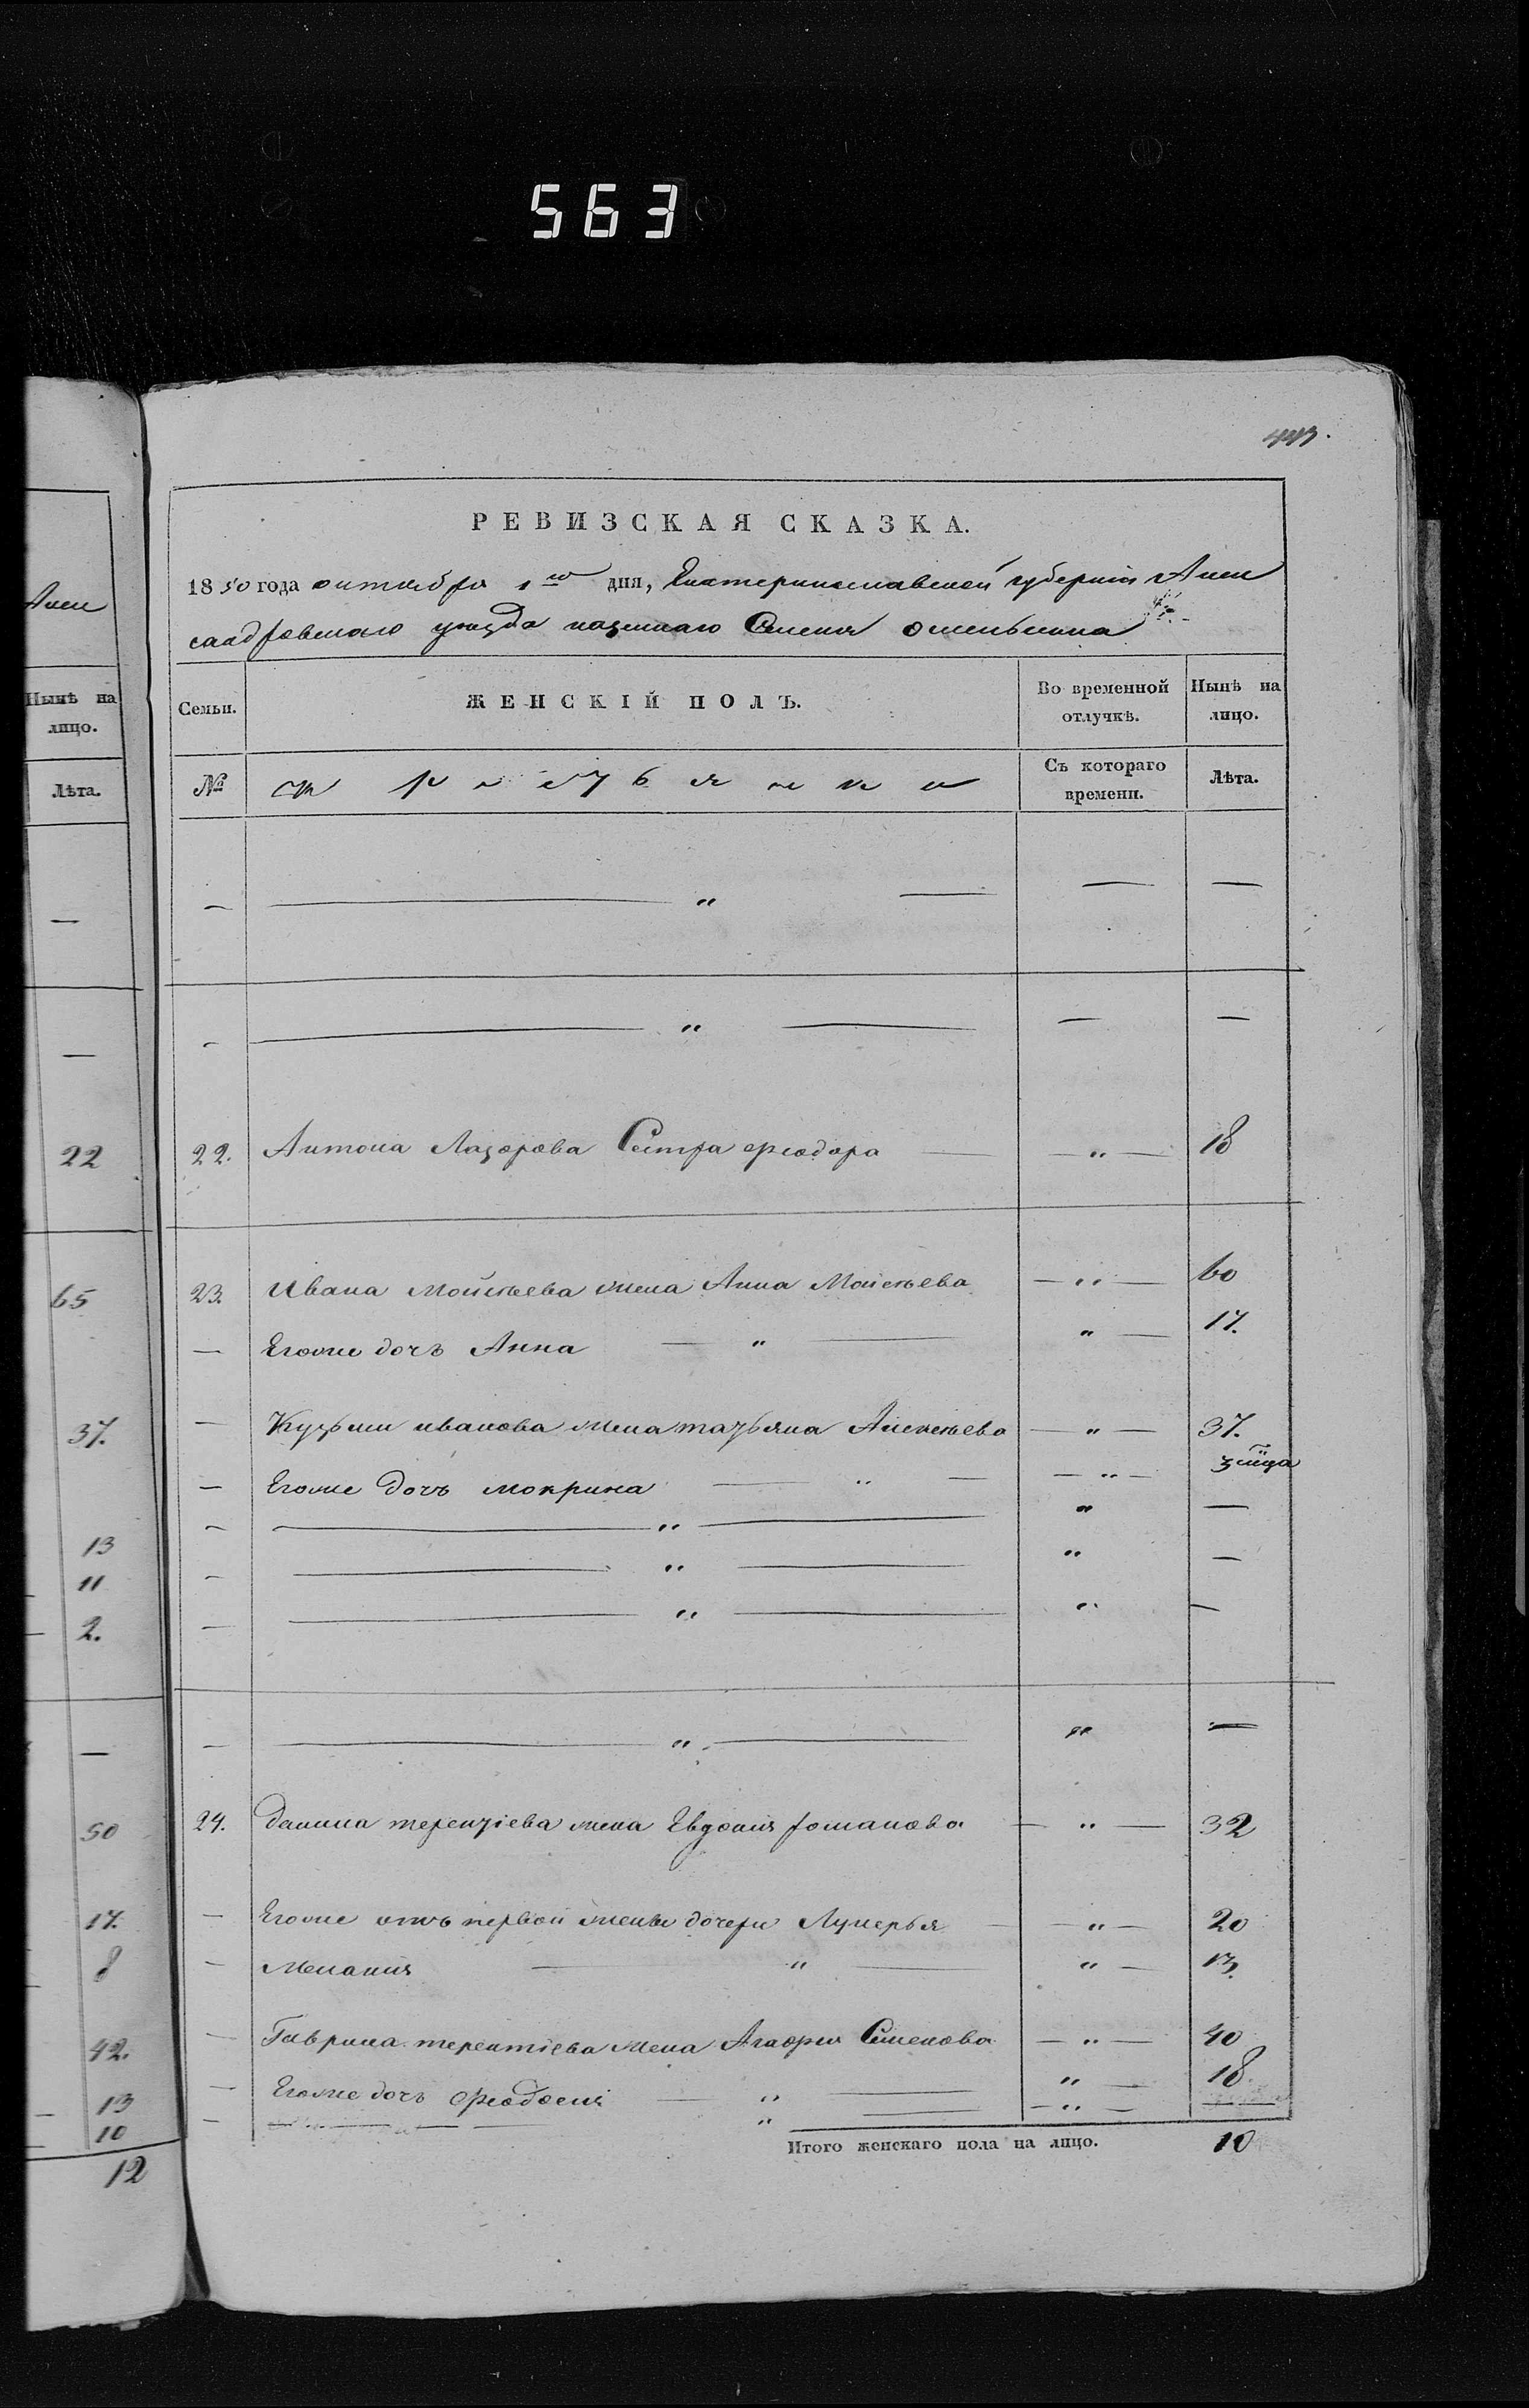 563
443.
Алек
Нынѣ на
лицо.
Лѣта.
—
—
22
65
37.
13
11
2.
—
50
17.
8
42.
13
10
12
РЕВИЗСКАЯ СКАЗКА.
1850 года октября 1го дня, Екатеринославской губерніи Алек
сандровскаго уѣзда казеннаго Селенія Омельника
Семьи. ЖЕНСКІЙ ПОЛЪ. Во временной отлучкѣ. Нынѣ на лицо.
№ Съ котораго времени. Лѣта.
— — „ — — —
— — „ — — —
22. Антона Лазорова Сестра Феодора — „ — 18
23. Ивана Мойсѣева жена Анна Моисѣева — „ — 60
— Егоже дочь Анна — „ — „ — 17.
— Кузьмы иванова жена татьяна Алексѣева — „ — 37.
— Егоже дочь мокрина — „ — — „ —
— — „ — „ —
— — „ — „ —
— — „ — „ —
— — „ — „ —
24. Данила терентіева жена Евдокия романова — „ — 32
— Егоже отъ первой жены дочери Лукерья — „ — 20
— Мелания — „ — „ — 13.
— Гаврила терентіева жена Агафия Семенова — „ — 40
— Егоже дочь Феодосия — „ — „ — 18
— „ — — „ —
Итого женскаго пола на лицо. 10